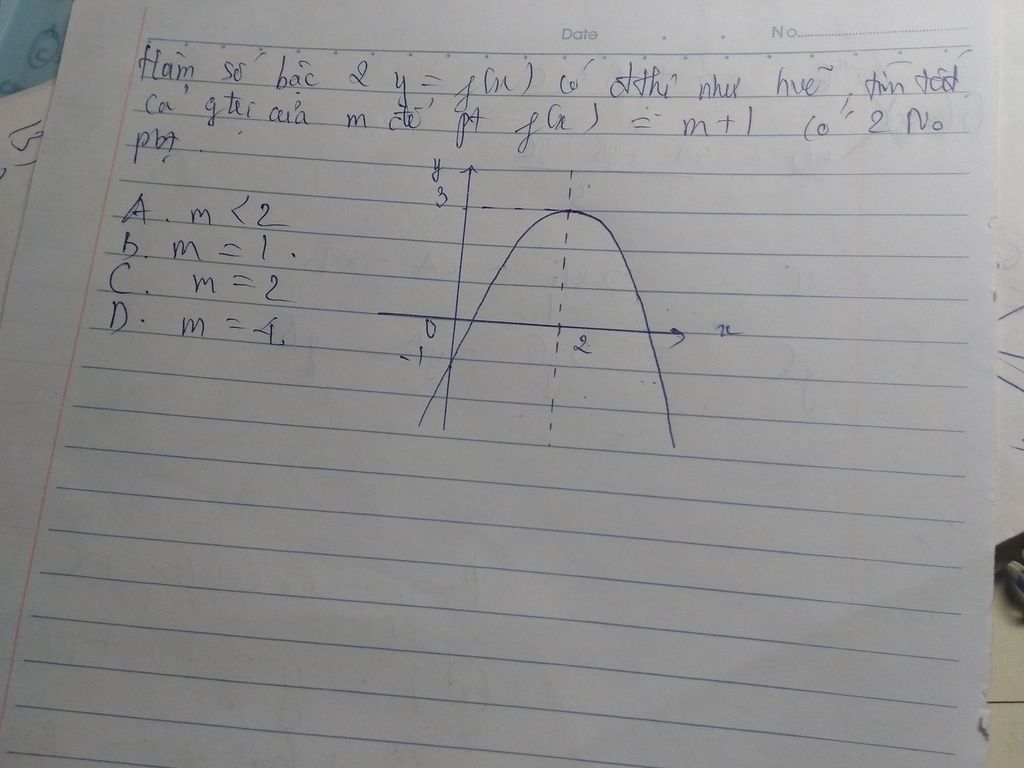 Date No
Hàm số bậc 2 y = f(x) có đthị như hvẽ, tìm tất
cả gtrị của m để pt f(x) = m+1 có 2 No
pbt.
y
3
A. m < 2
B. m = 1.
C. m = 2
D. m = 4
0
2
x
-1